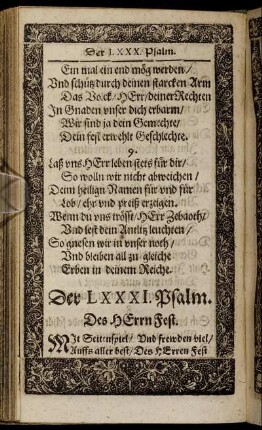 Der LXXX. Psalm.
Ein mal ein end mög werden/
Vnd schütz durch deinen starcken Arm
Das Volck/HErr/deiner Rechten
In Gnaden vnser dich erbarm/
Wir sind ja dein Gemechte/
Dein fest erwehlt Geschlechte.
9.
Laß vns HErr leben stets für dir/
So wolln wir nicht abweichen/
Deim heilign Namen für vnd für
Lob/ ehr vnd preiß erzeigen.
Wenn du vns tröst/HErr Zebaoth/
Vnd lest dein Antlitz leuchten/
So gnesen wir in vnser noth/
Vnd bleiben all zu gleiche
Erben in deinem Reiche.
Der LXXXI. Psalm.
Des HErrn Fest.
MIt Seitenspiel/ Vnd frewden viel/
Auffs aller best/ Des HErren Fest